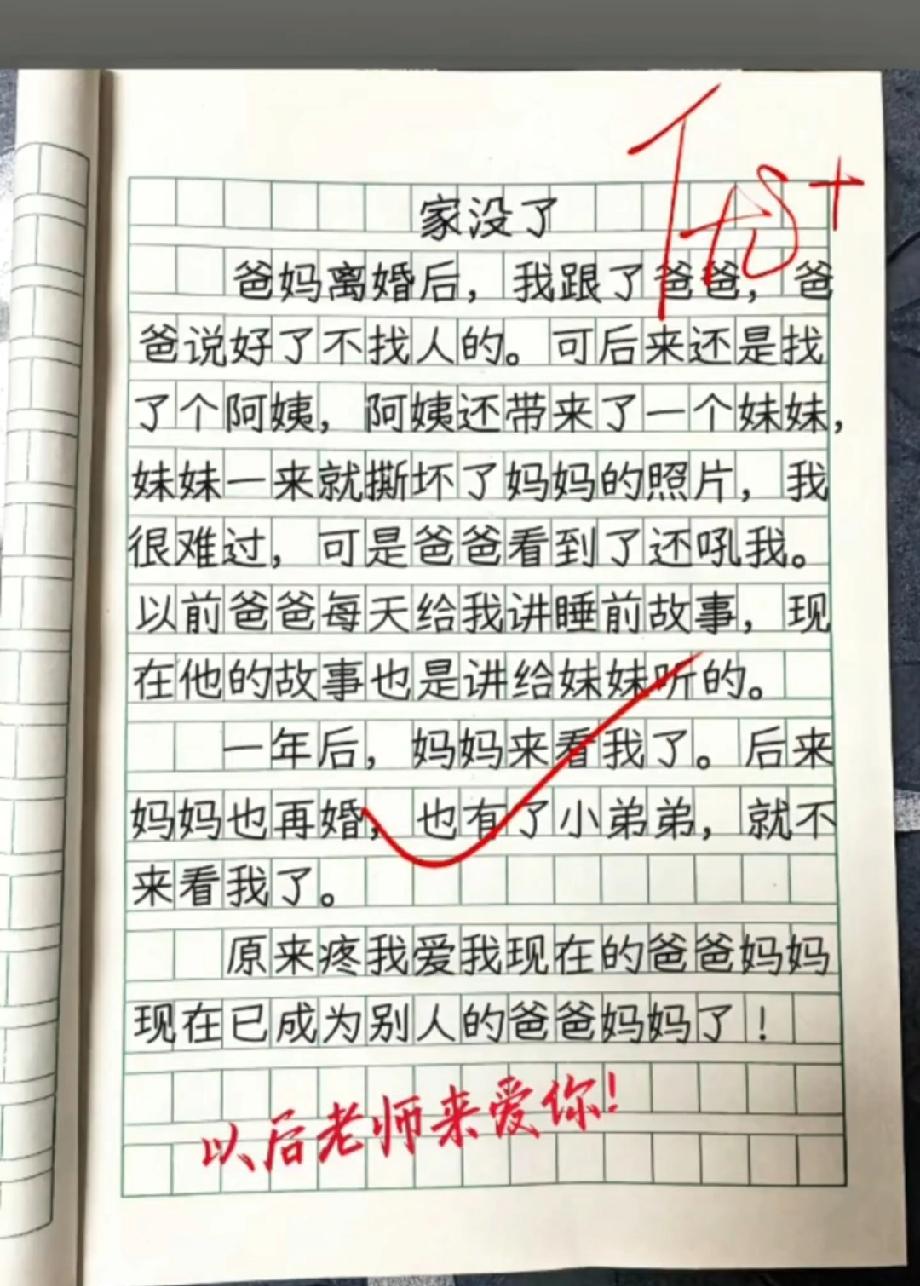 家没了
爸妈离婚后，我跟了爸爸，爸
爸说好了不找人的。可后来还是找
了个阿姨，阿姨还带来了一个妹妹，
妹妹一来就撕坏了妈妈的照片，我
很难过，可是爸爸看到了还吼我。
以前爸爸每天给我讲睡前故事，现
在他的故事也是讲给妹妹听的。
一年后，妈妈来看我了。后来
妈妈也再婚，也有了小弟弟，就不
来看我了。
原来疼我爱我现在的爸爸妈妈
现在已成为别人的爸爸妈妈了！
以后老师来爱你！